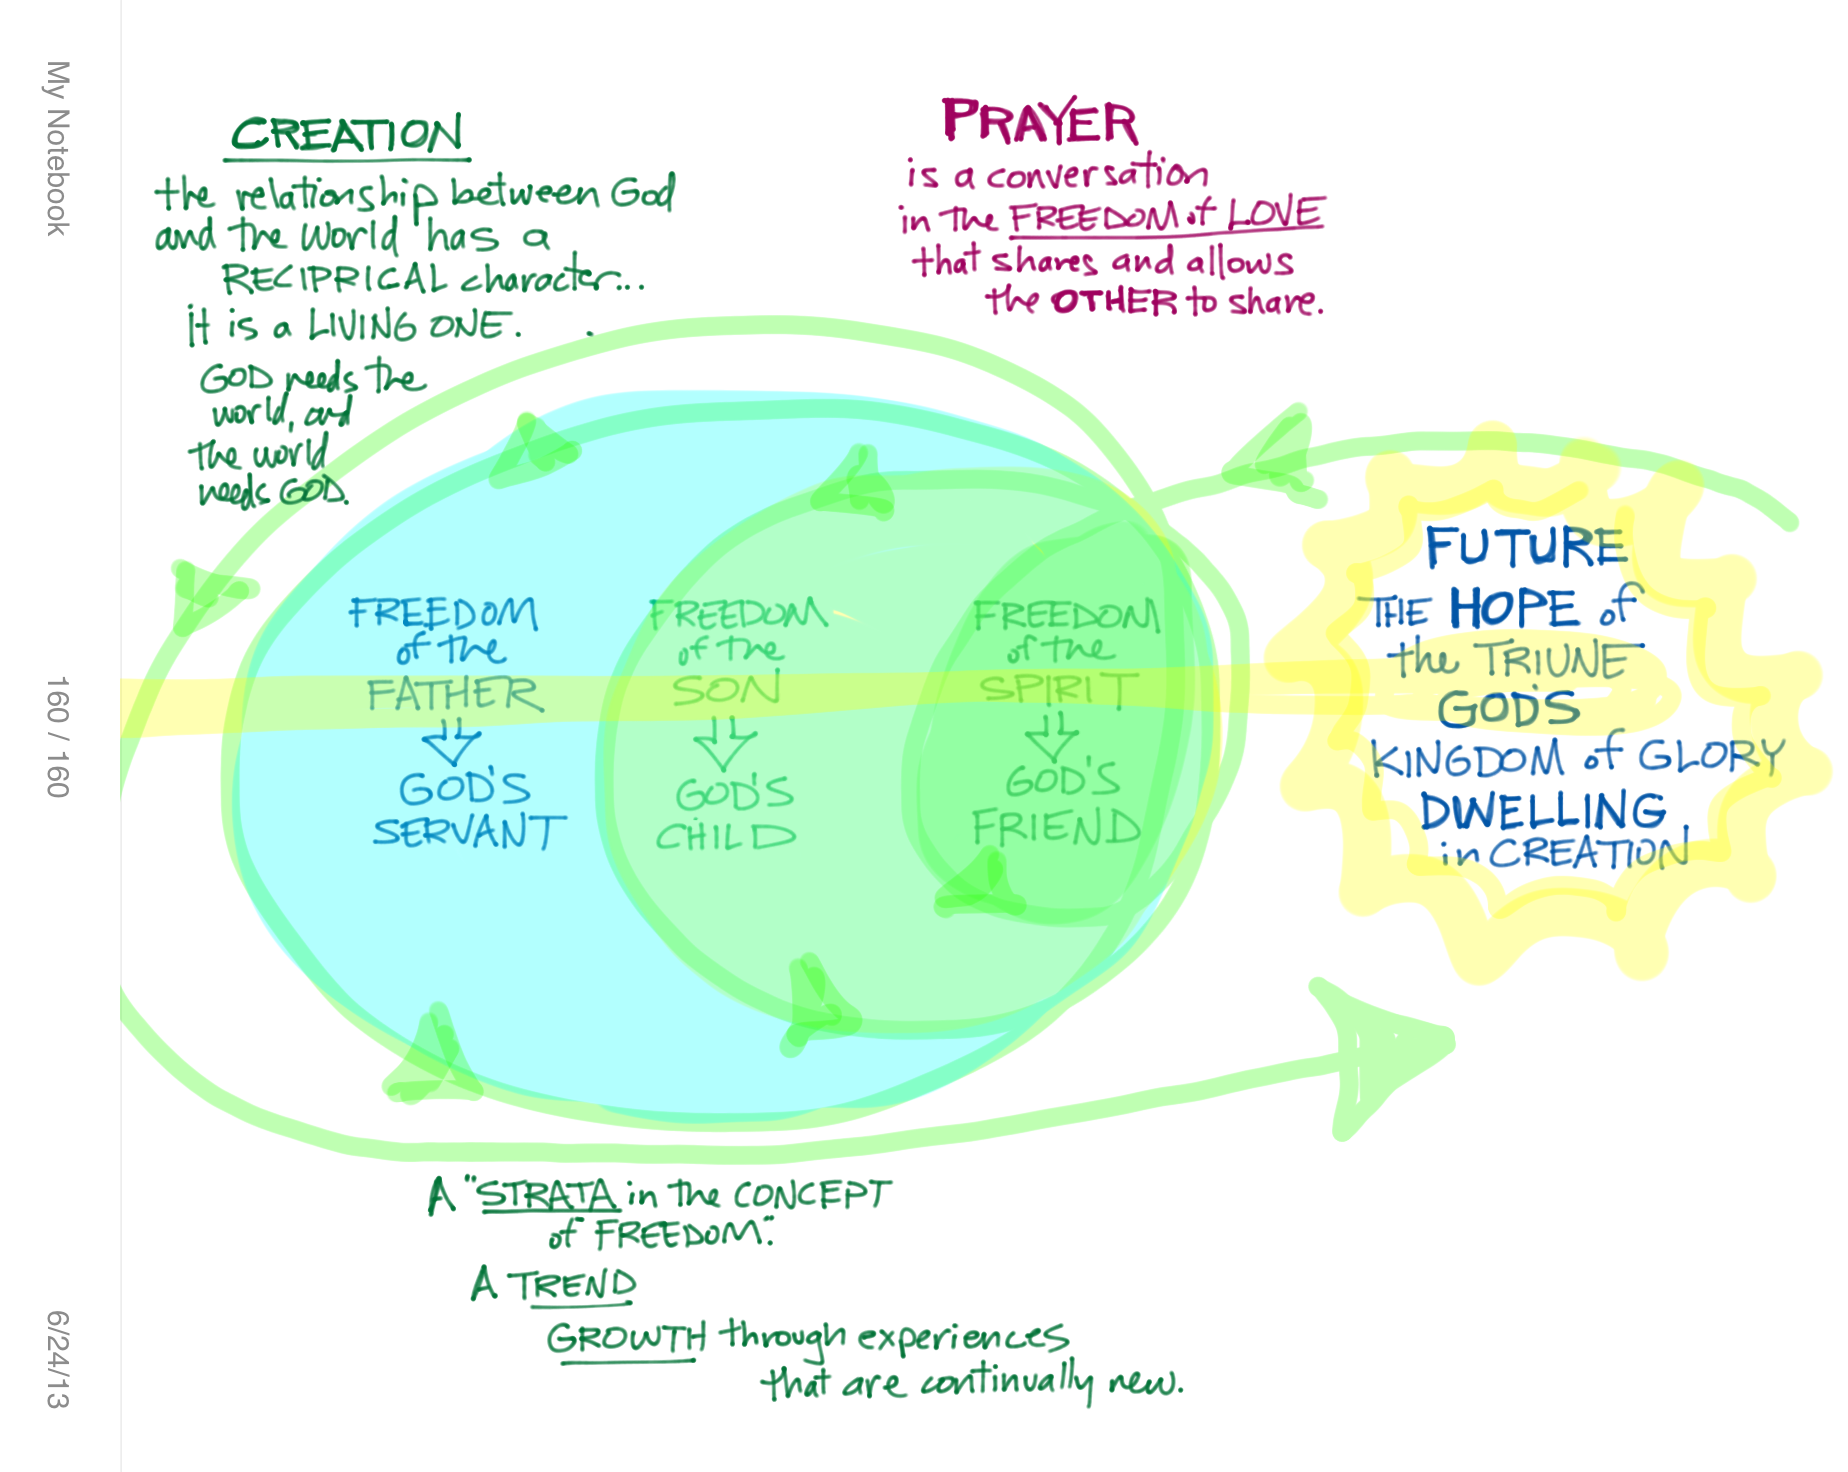 My Notebook
160 / 160
6/24/13
CREATION
the relationship between God
and the World has a
RECIPRICAL character...
it is a LIVING ONE.
GOD needs the
world, and
the world
needs GOD.
PRAYER
is a conversation
in the FREEDOM of LOVE
that shares and allows
the OTHER to share.
FREEDOM
of the
FATHER
GOD'S
SERVANT
FREEDOM
of the
SON
GOD'S
CHILD
FREEDOM
of the
SPIRIT
GOD'S
FRIEND
FUTURE
THE HOPE of
the TRIUNE
GOD'S
KINGDOM of GLORY
DWELLING
in CREATION
A "STRATA in the CONCEPT
of FREEDOM".
A TREND
GROWTH through experiences
that are continually new.